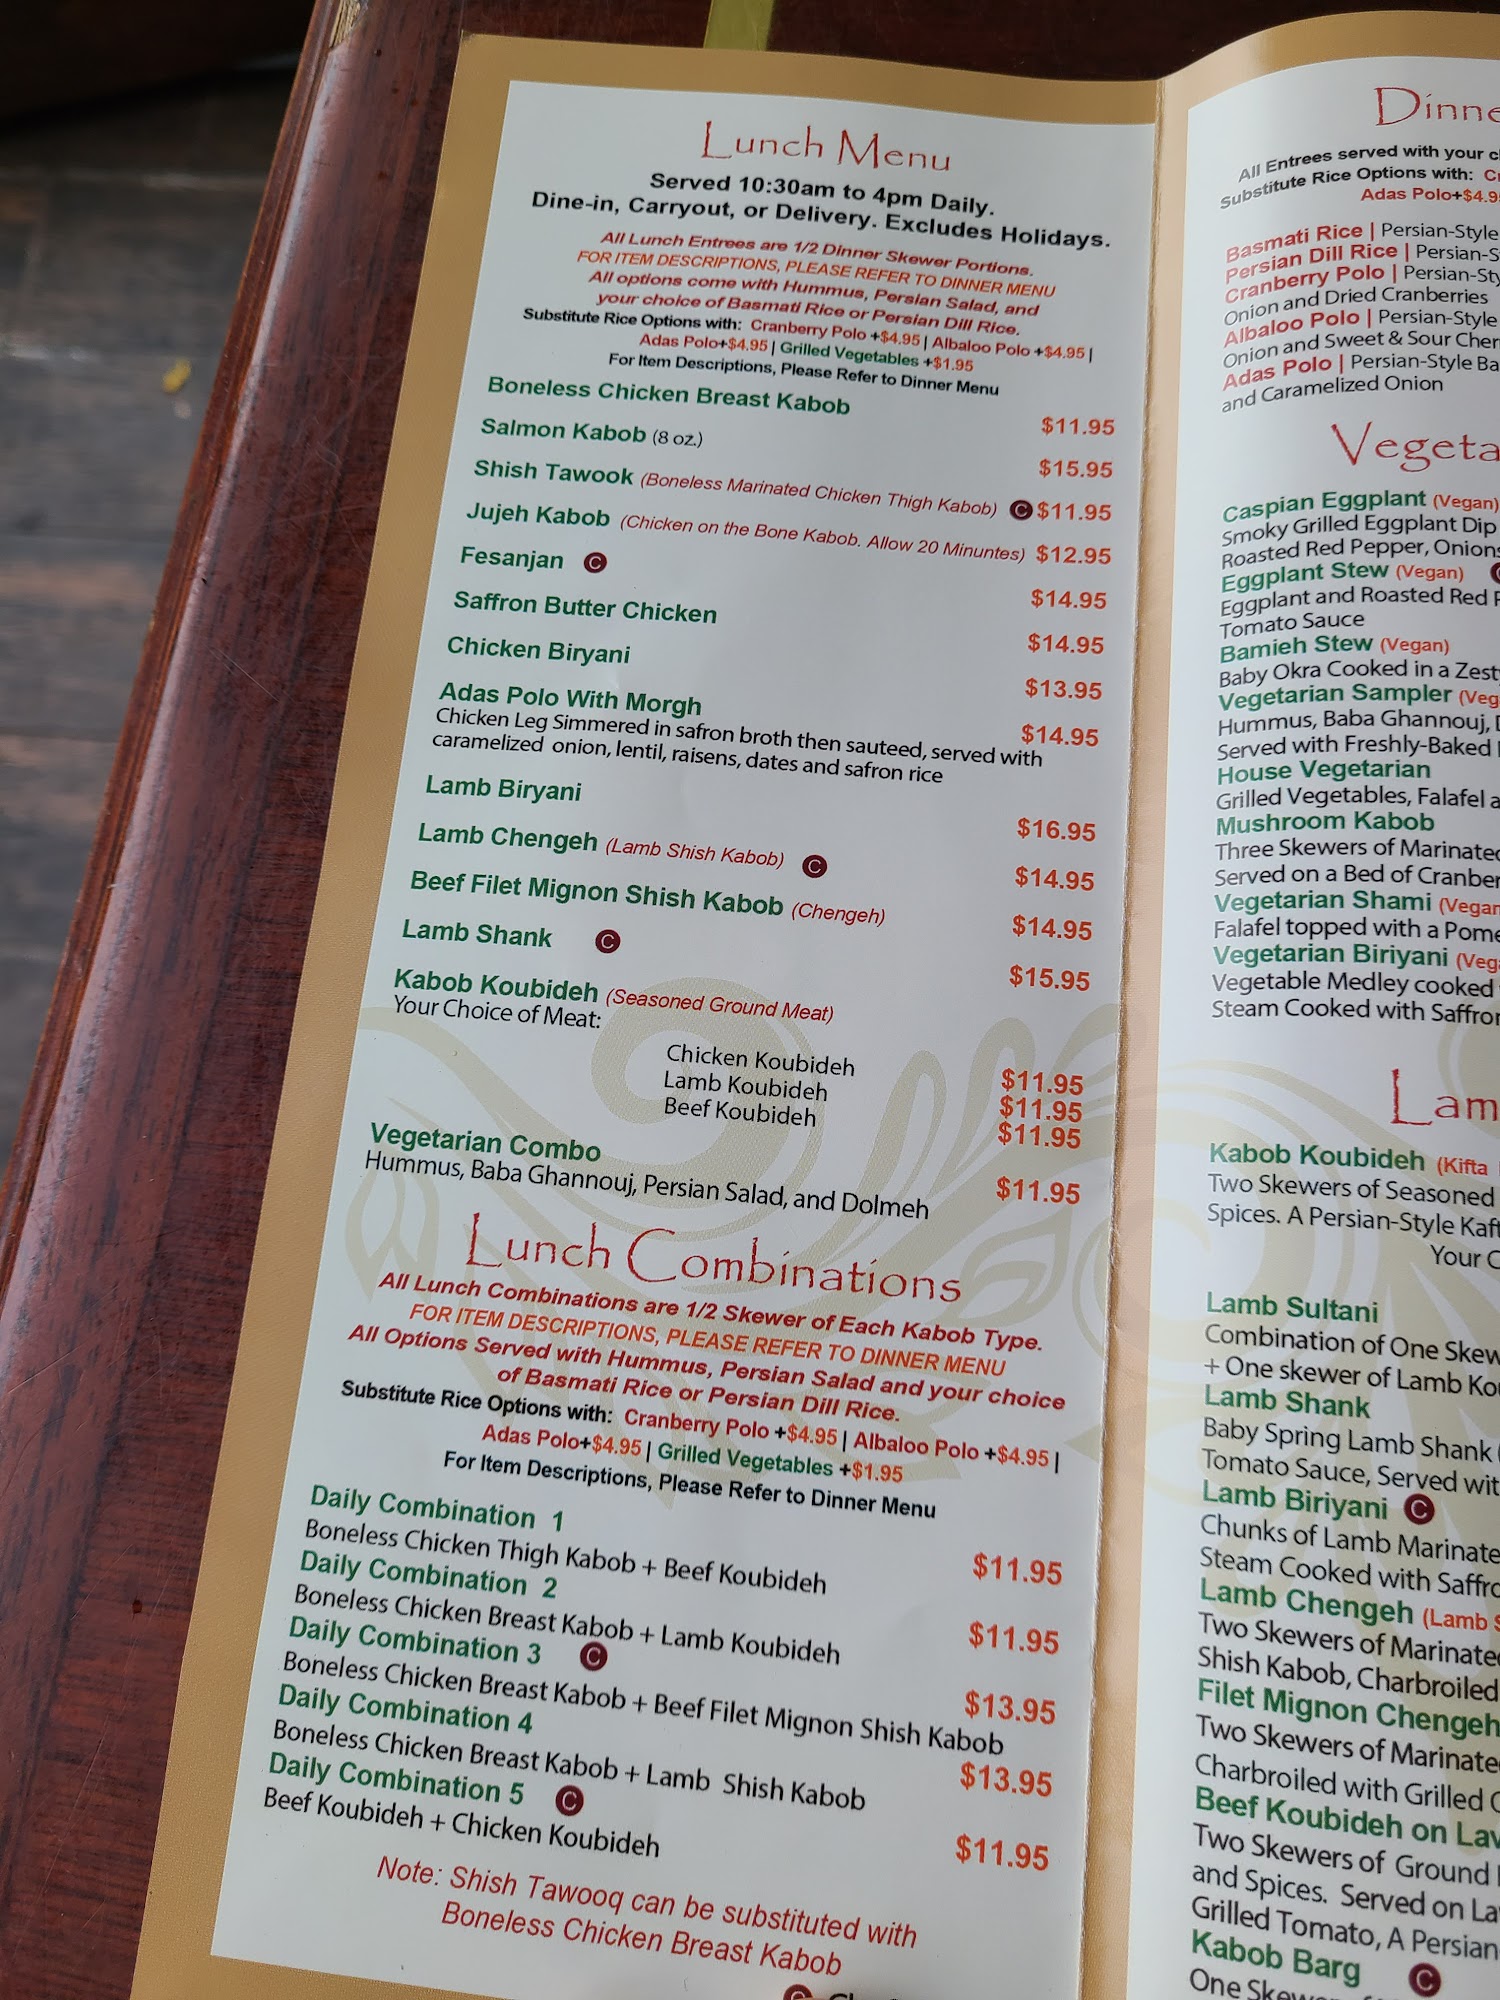 Lunch Menu
Served 10:30am to 4pm Daily.
Dine-in, Carryout, or Delivery. Excludes Holidays.
All Lunch Entrees are 1/2 Dinner Skewer Portions.
FOR ITEM DESCRIPTIONS, PLEASE REFER TO DINNER MENU
All options come with Hummus, Persian Salad, and
your choice of Basmati Rice or Persian Dill Rice.
Substitute Rice Options with: Cranberry Polo +$4.95 | Albaloo Polo +$4.95 |
Adas Polo+$4.95 | Grilled Vegetables +$1.95
For Item Descriptions, Please Refer to Dinner Menu
Boneless Chicken Breast Kabob $11.95
Salmon Kabob (8 oz.) $15.95
Shish Tawook (Boneless Marinated Chicken Thigh Kabob) C $11.95
Jujeh Kabob (Chicken on the Bone Kabob. Allow 20 Minuntes) $12.95
Fesanjan C $14.95
Saffron Butter Chicken $14.95
Chicken Biryani $13.95
Adas Polo With Morgh $14.95
Chicken Leg Simmered in safron broth then sauteed, served with
caramelized onion, lentil, raisens, dates and safron rice
Lamb Biryani $16.95
Lamb Chengeh (Lamb Shish Kabob) C $14.95
Beef Filet Mignon Shish Kabob (Chengeh) $14.95
Lamb Shank C $15.95
Kabob Koubideh (Seasoned Ground Meat)
Your Choice of Meat:
Chicken Koubideh $11.95
Lamb Koubideh $11.95
Beef Koubideh $11.95
Vegetarian Combo $11.95
Hummus, Baba Ghannouj, Persian Salad, and Dolmeh
Lunch Combinations
All Lunch Combinations are 1/2 Skewer of Each Kabob Type.
FOR ITEM DESCRIPTIONS, PLEASE REFER TO DINNER MENU
All Options Served with Hummus, Persian Salad and your choice
of Basmati Rice or Persian Dill Rice.
Substitute Rice Options with: Cranberry Polo +$4.95 | Albaloo Polo +$4.95 |
Adas Polo+$4.95 | Grilled Vegetables +$1.95
For Item Descriptions, Please Refer to Dinner Menu
Daily Combination 1 $11.95
Boneless Chicken Thigh Kabob + Beef Koubideh
Daily Combination 2 $11.95
Boneless Chicken Breast Kabob + Lamb Koubideh
Daily Combination 3 C $13.95
Boneless Chicken Breast Kabob + Beef Filet Mignon Shish Kabob
Daily Combination 4 $13.95
Boneless Chicken Breast Kabob + Lamb Shish Kabob
Daily Combination 5 C $11.95
Beef Koubideh + Chicken Koubideh
Note: Shish Tawooq can be substituted with
Boneless Chicken Breast Kabob
C
Dinne
All Entrees served with your
Substitute Rice Options with:
Adas Polo+$4.9
Basmati Rice | Persian-Style
Persian Dill Rice | Persian-S
Cranberry Polo | Persian-Sty
Onion and Dried Cranberries
Albaloo Polo | Persian-Style
Onion and Sweet & Sour Cher
Adas Polo | Persian-Style Ba
and Caramelized Onion
Vegeta
Caspian Eggplant (Vegan)
Smoky Grilled Eggplant Dip
Roasted Red Pepper, Onions
Eggplant Stew (Vegan)
Eggplant and Roasted Red
Tomato Sauce
Bamieh Stew (Vegan)
Baby Okra Cooked in a Zest
Vegetarian Sampler (Veg
Hummus, Baba Ghannouj,
Served with Freshly-Baked
House Vegetarian
Grilled Vegetables, Falafel a
Mushroom Kabob
Three Skewers of Marinated
Served on a Bed of Cranber
Vegetarian Shami (Vegan
Falafel topped with a Pome
Vegetarian Biriyani (Veg
Vegetable Medley cooked
Steam Cooked with Saffron
Lam
Kabob Koubideh (Kifta
Two Skewers of Seasoned
Spices. A Persian-Style Kaft
Your C
Lamb Sultani
Combination of One Skew
+ One skewer of Lamb Kou
Lamb Shank
Baby Spring Lamb Shank
Tomato Sauce, Served wit
Lamb Biriyani C
Chunks of Lamb Marinate
Steam Cooked with Saffro
Lamb Chengeh (Lamb S
Two Skewers of Marinated
Shish Kabob, Charbroiled
Filet Mignon Chengeh
Two Skewers of Marinated
Charbroiled with Grilled
Beef Koubideh on Lav
Two Skewers of Ground
and Spices. Served on La
Grilled Tomato, A Persian
Kabob Barg C
One Skew